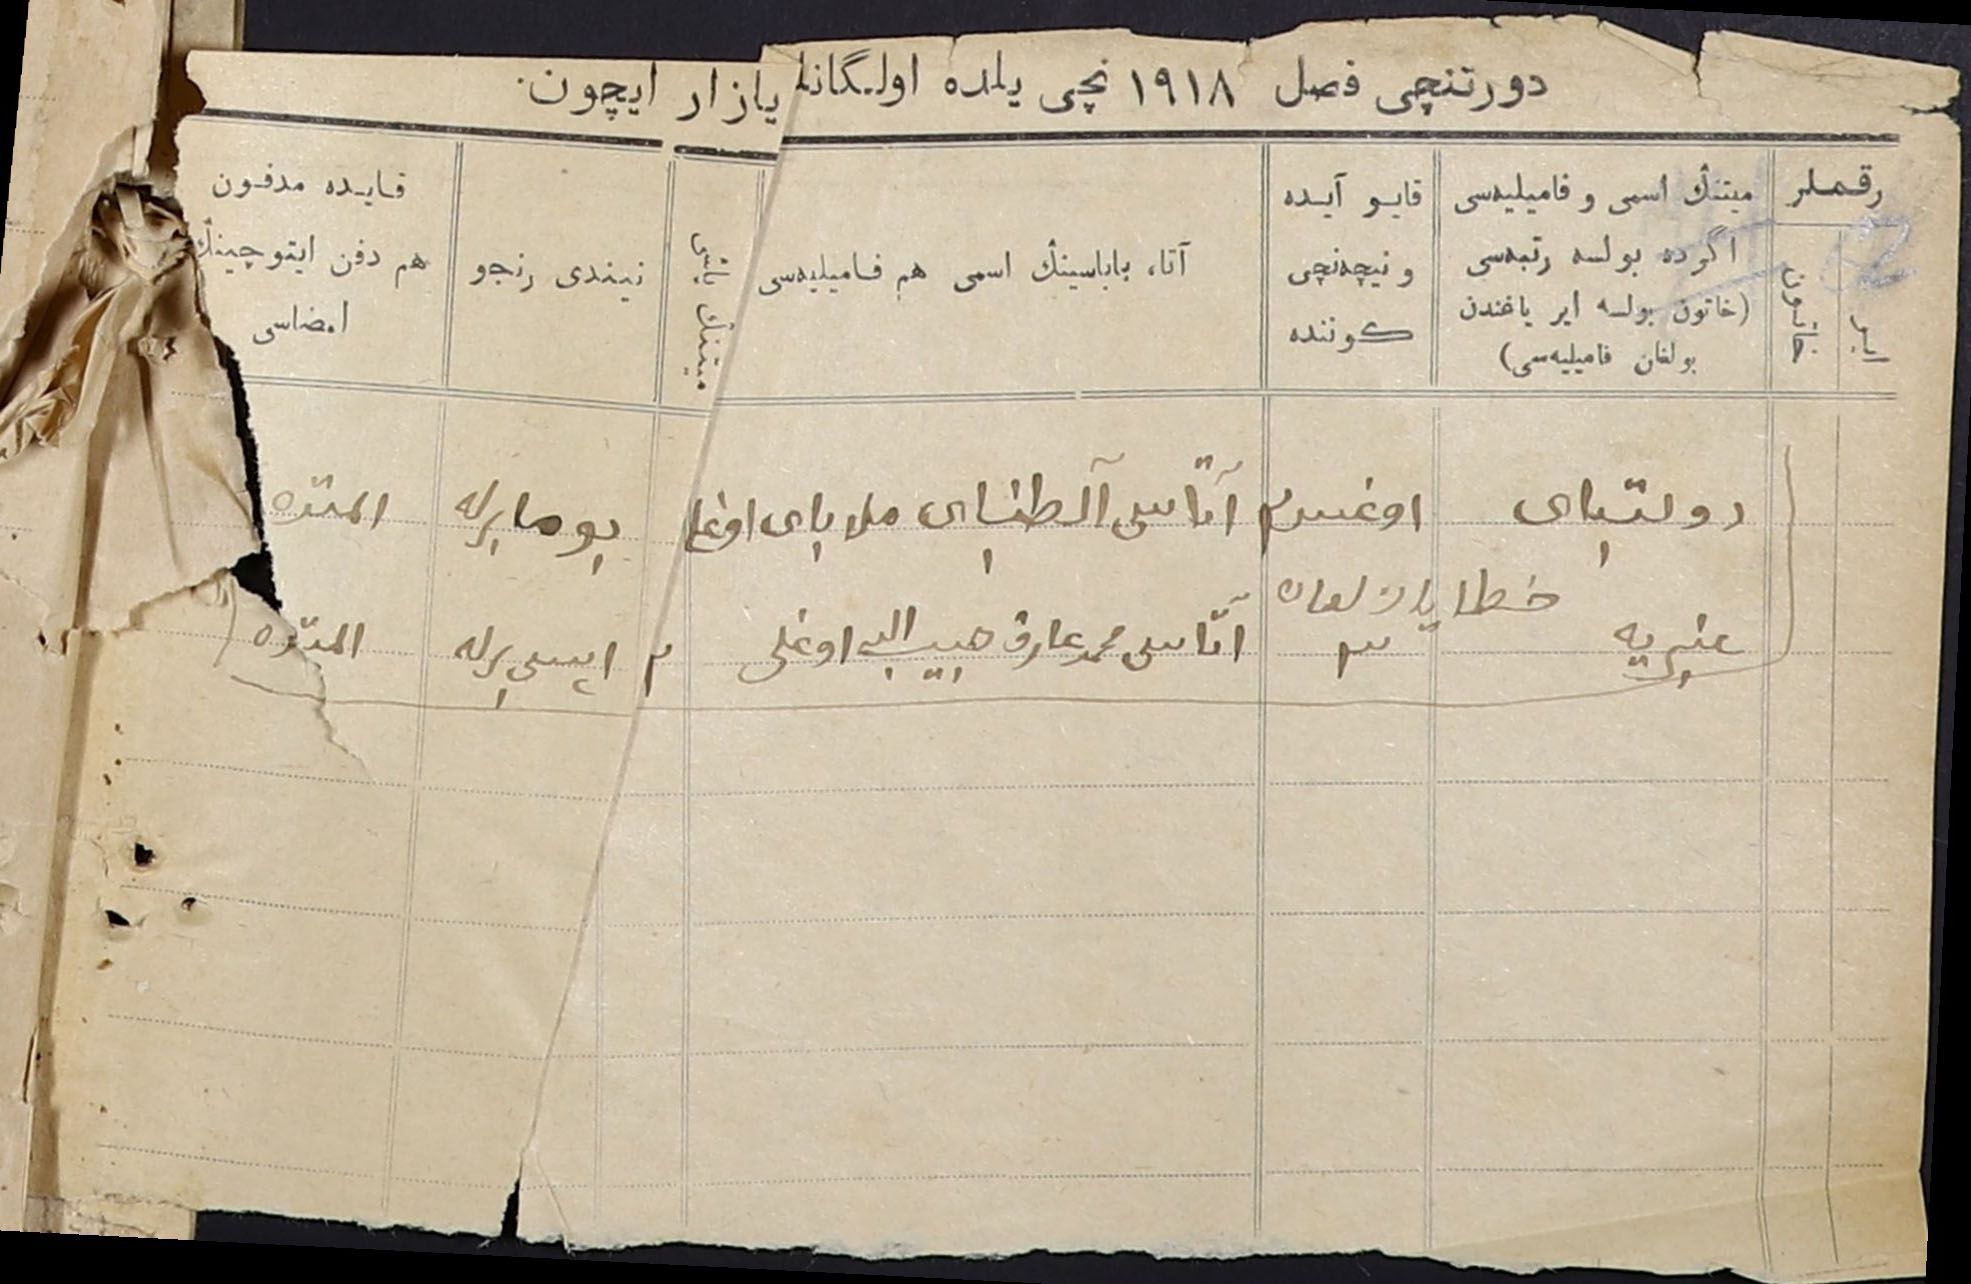 دورتنچی فصل ۱۹۱۸ نچی یلده اولگانلر یازار ایچون.
رقملر
ایر
خاتون
میتنڭ اسمی و فامیلیه‌سی
اگرده بولسه رتبه‌سی
(خاتون بولسه ایر یاغندن
بولغان فامیلیه‌سی)
قایو آیده
و نیچه‌نچی
كوننده
آتا، باباسینڭ اسمی هم فامیلیه‌سی
میتنڭ یاشی
نیندی رنجو
قایده مدفون
هم دفن ایتوچینڭ
امضاسی
دولتبای
آتاسی آلطنبای ملا بای اوغلی
بوما برله
خطا یازلغان
عنبریه
۳
آتاسی محمد عارف حبیب الله اوغلی
۲
ایسسی برله